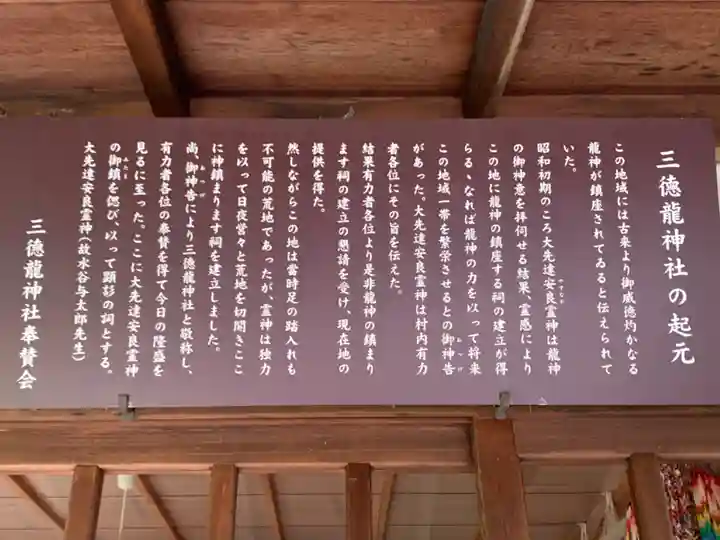 三徳龍神社の起元
この地域には古来より御威徳灼かなる
龍神が鎮座されてゐると伝えられて
いた。
昭和初期のころ大先達安良霊神は龍神
の御神意を拝伺せる結果、霊感により
この地に龍神の鎮座する祠の建立が得
らるゝなれば龍神の力を以って将来
この地域一帯を繁栄させるとの御神告
があった。大先達安良霊神は村内有力
者各位にその旨を伝えた。
結果有力者各位より是非龍神の鎮まり
ます祠の建立の懇請を受け、現在地の
提供を得た。
然しながらこの地は當時足の踏入れも
不可能の荒地であったが、霊神は独力
を以って日夜営々と荒地を切開きここ
に神鎮まります祠を建立しました。
尚、御神告により三徳龍神社と敬称し、
有力者各位の奉賛を得て今日の隆盛を
見るに至った。ここに大先達安良霊神
の御鎮を偲び、以って顕彰の詞とする。
大先達安良霊神(故水谷与太郎先生)
三徳龍神社奉賛会